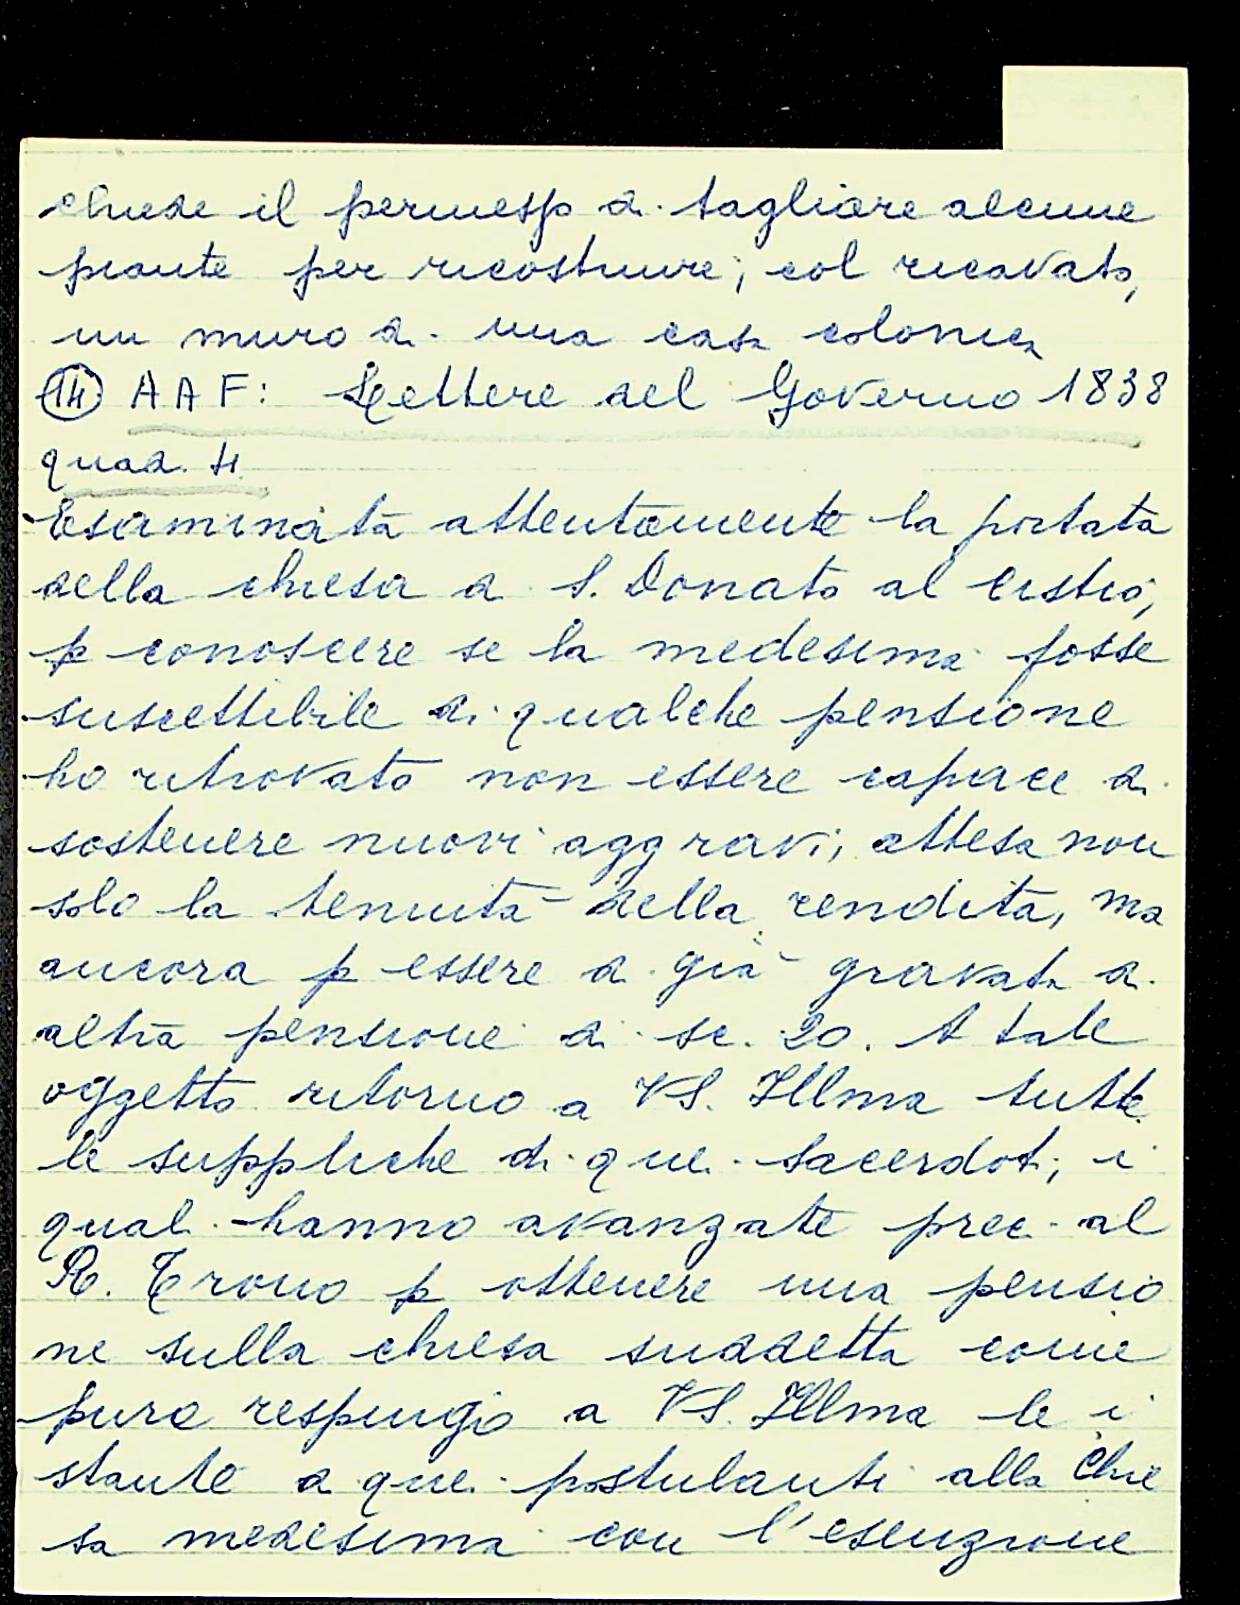 chiede il permesso di tagliare alcune
piante per ricostruire, col ricavato,
un muro di una casa colonica
(14) AAF: Lettere del Governo 1838
quad. 4.
Esaminata attentamente la portata
della chiesa di S. Donato al Cistio,
p conoscere se la medesima fosse
suscettibile di qualche pensione
ho ritrovato non essere capace di
sostenere nuovi aggravi, attesa non
solo la tenuità della rendita, ma
ancora p essere di già gravata di
altra pensione di sc. 20. A tale
oggetto ritorno a VS. Illma tutte
le suppliche di quei sacerdoti, i
quali hanno avanzate preci al
R. Trono p ottenere una pensio
ne sulla chiesa suddetta come
pure respingo a VS. Illma le i
stante di quei postulanti alla Chie
sa medesima con l'esenzione